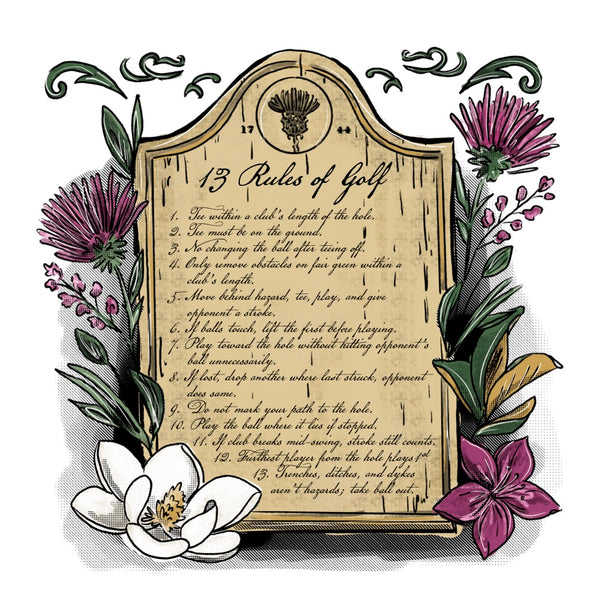 17 44
13 Rules of Golf
1. Tee within a club's length of the hole.
2. Tee must be on the ground.
3. No changing the ball after teeing off.
4. Only remove obstacles on fair green within a
club's length.
5. Move behind hazard, tee, play, and give
opponent a stroke.
6. If balls touch, lift the first before playing.
7. Play toward the hole without hitting opponent's
ball unnecessarily.
8. If lost, drop another where last struck, opponent
does same.
9. Do not mark your path to the hole.
10. Play the ball where it lies if stopped.
11. If club breaks mid-swing, stroke still counts.
12. Furthest player from the hole plays 1st
13. Trenches, ditches, and dykes
aren't hazards; take ball out.